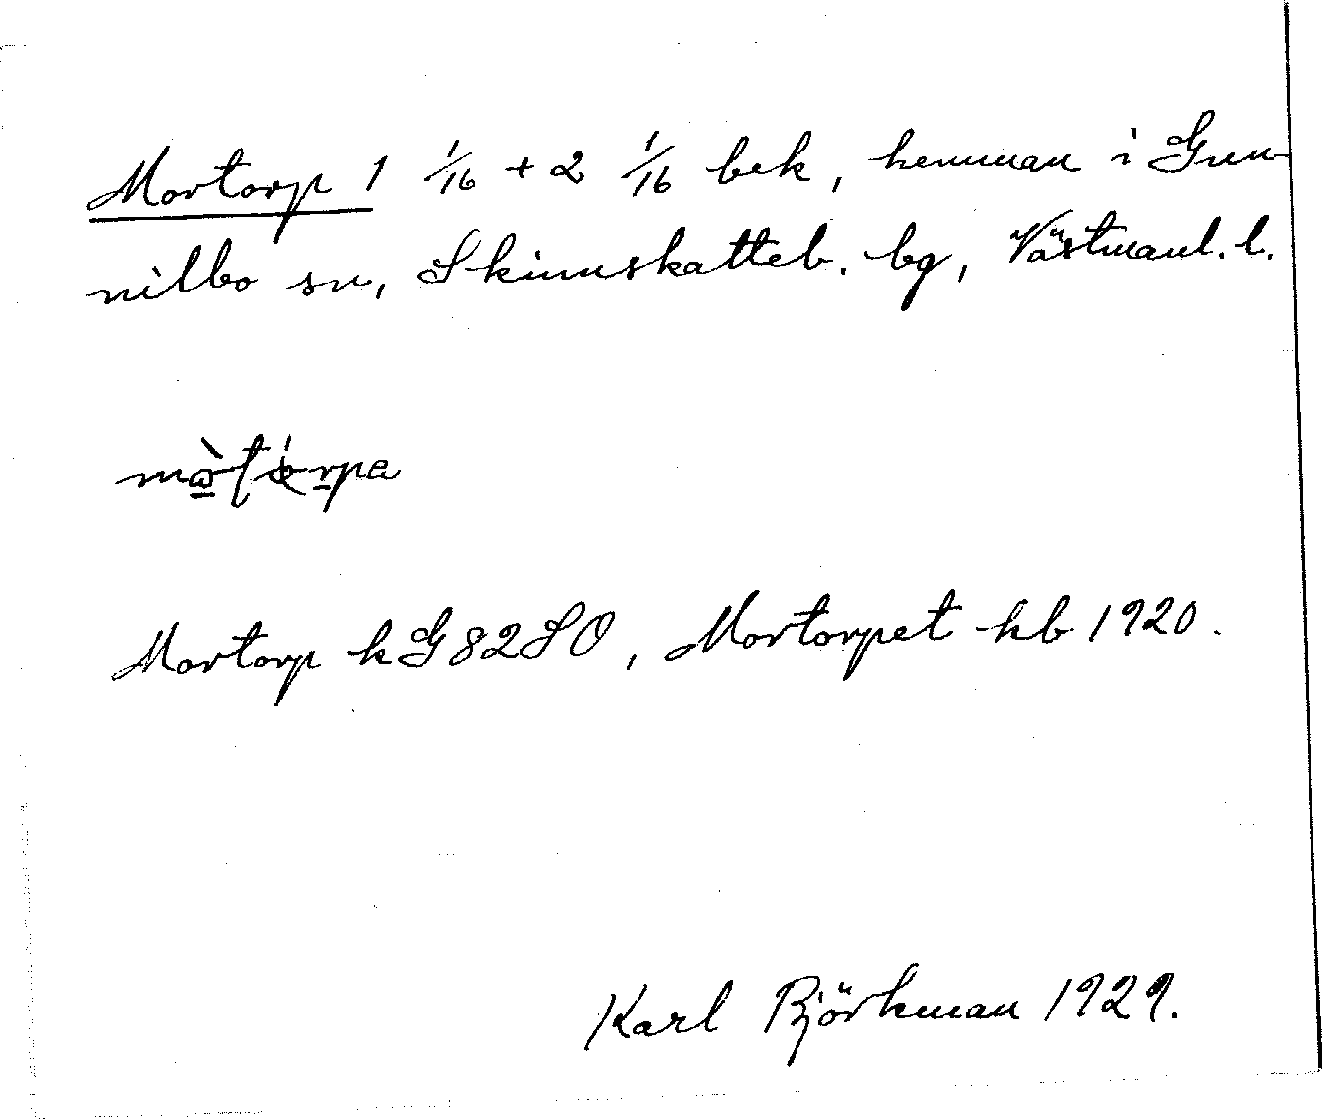 Mortorp 1 1/16 + 2 1/16 bek, hemman i Gun-
nilbo sn, Skinnskatteb. bg, Västmanl. l.
Mortorp kG82SO, Mortorpet kb 1920.
Karl Björkman 1929.